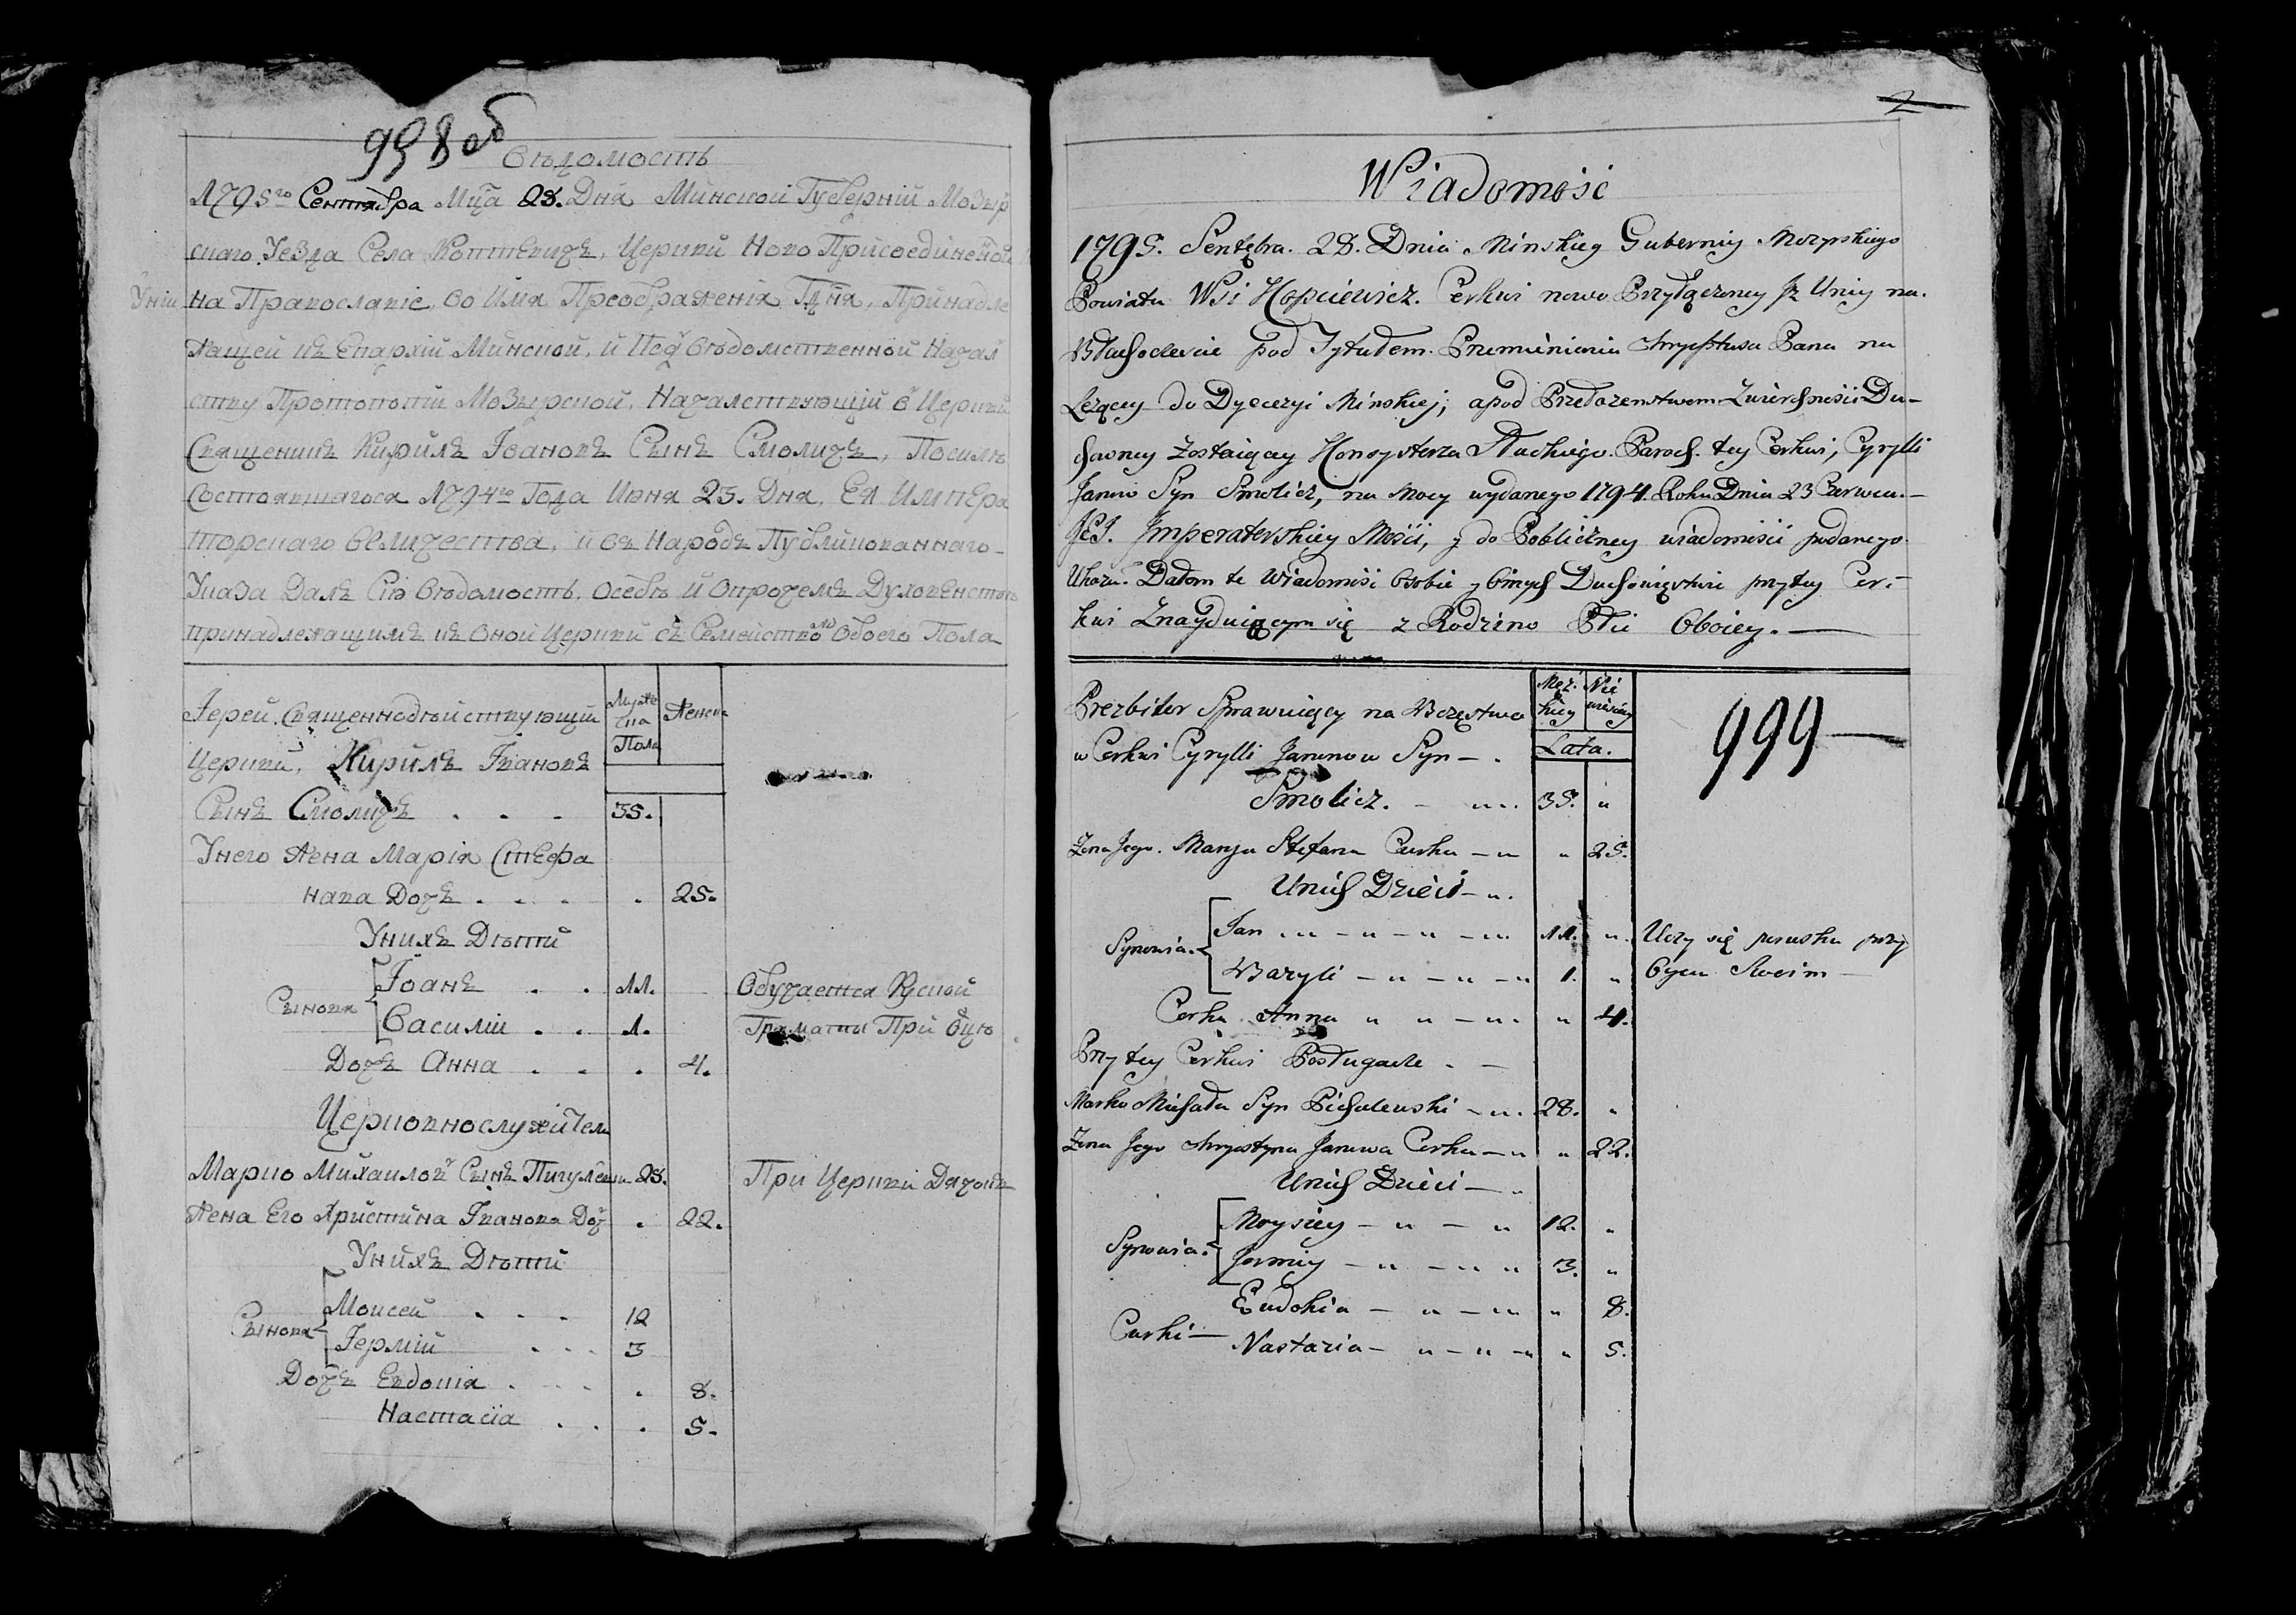 998об
Вѣдомость
1795го Сентября Мца 28. Дня Минской Губерній Мозыр
скаго Уезда Села Коптевичъ, Церкви Ново Присоединеной
Уніи на Православіе, во Имя Преображенія Гдня, Принадле
жащей къ Епархіи Минской, и Под Вѣдомственной Начал
ству Протопопіи Мозырской, Началствующій в Церкви
Священникъ Кирилъ Іванов Сынъ Смоличъ, Посилѣ
Состоявшагося 1794го Года Июня 23. Дня, Ея Импера
торскаго Величества, и въ Народъ Публикованнаго
Указа Далъ Сію Вѣдомость. Осебѣ и Опрочемъ Духовенствѣ
принадлежащимъ къ Оной Церкви съ Семействомъ Обоего Пола
Іерей. Священнодѣйствующій
Церкви, Кирилъ Івановъ
Сынъ Смоличъ . . . 35.
Муже
ска Женска
Пола
Унего Жена Марія Стефа
нава Дочъ . . . . 25.
Унихъ Дѣти
Сынове Іоанъ . . 11. Обучается Руской
Василій . . 1. Граматы При Оцю
Дочъ Анна . . . 4.
Церковнослужители
Марко Михаилов Сынъ Пигулевски 28. При Церкви Дячокъ
Жена Его Христина Іванова Доч . 22.
Унихъ Дѣти
Сынове Моисей . . . 12
Іермій . . . 3
Дочъ Евдокія . . . . 8.
Настасія . . . 5.
2
Wiadomość
1795. Sentebra. 28. Dnia Minskiey Guberniy Mozyrskiego
Powiatu Wsi Kopciewicz. Cerkwi nowo Przyłączoney z Uniy na
Błahoczescie pod Tytułem. Przemienienia Chrystusa Pana na
Leżącey do Dyecezyi Minskiey, a pod Przełozenstwem Zwierchności Du-
chowney Zostaiącey Konsysterza Słuckiego. Paroch. tey Cerkwi, Cyrylli
Janow Syn Smolicz, na Mocy wydanego 1794. Roku Dnia 23 Czerwca.
Jey Imperatorskiey Mości, y do Publiczney wiadomości podanego
Ukazu. Dałem te Wiadomość Osobie y Onnych Duchowięstwie przytey Cer-
kwi Znayduiącym się z Rodzino Płci Oboiey.
Prezbiter Sprawuiący na Bozęstwo
w Cerkwi Cyrylli Janow Syn
Smolicz. 35. „
Męz-
kiey Nie
wieściey
Lata.
999
Zona Jego. Marya Stefana Curka „ 25.
Unich Dzieci
Synowie Jan 11. „ Uczy się poruska przy
Bazyli 1. „ Oycu Swoim
Corka Anna „ 4.
Przy tey Cerkwi Posługacze
Marko Michała Syn Pichulewski 28. „
Zona Jego Chrystyna Janowa Corka „ 22.
Unich Dzieci
Synowie Moysiey 12. „
Jermiy 3. „
Curki Eudokia „ 8.
Nastazia „ 5.